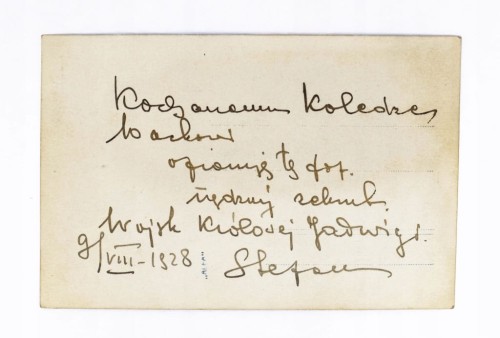 Kochanemu Koledze
Wackowi
ofiaruję tę fot.
nędzny rekrut
Wojsk Królowej Jadwigi.
9/VIII-1928 Stefan